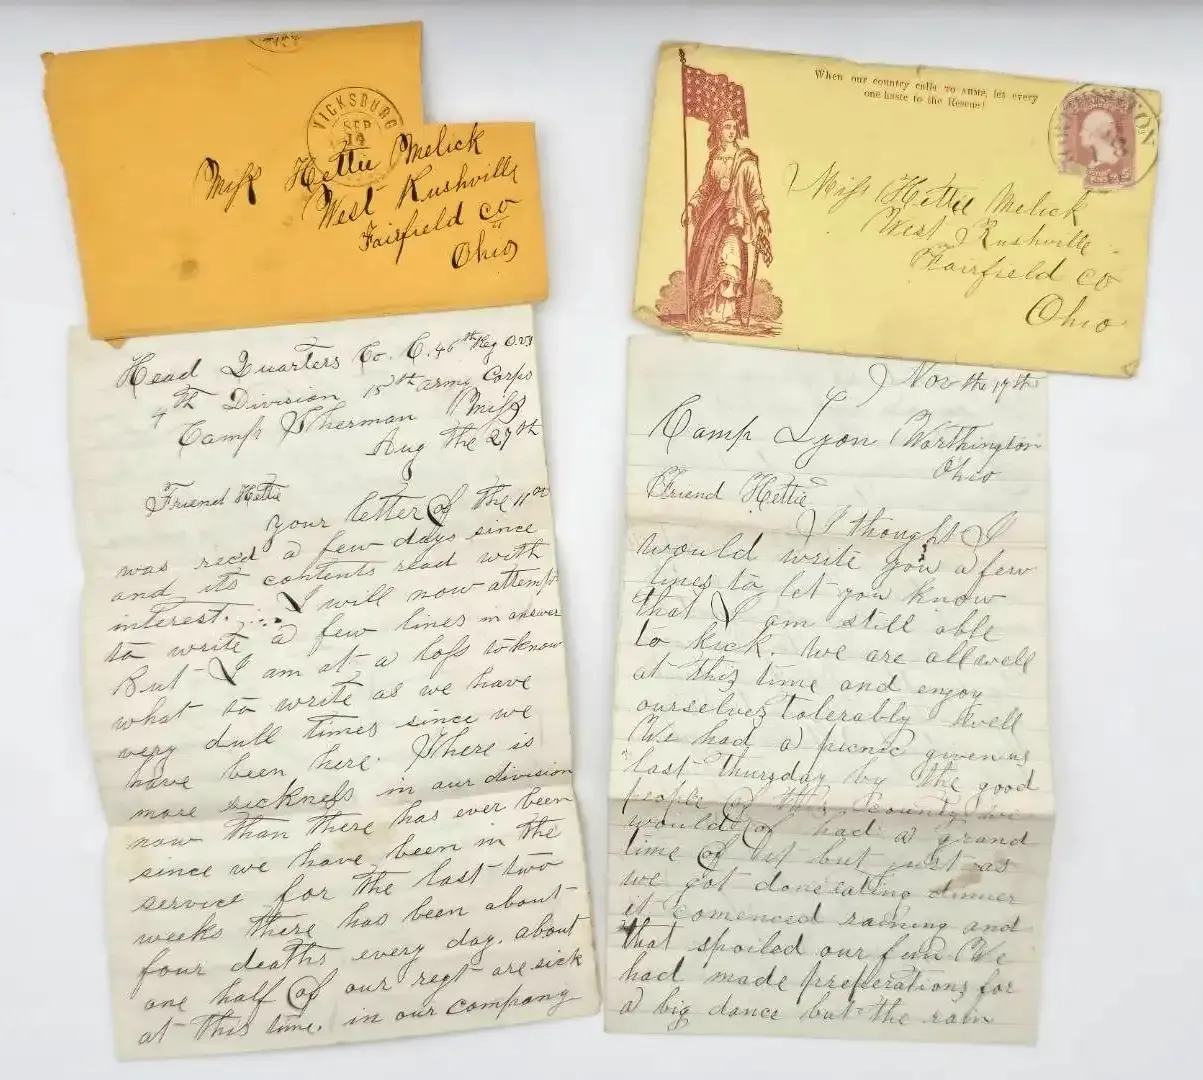 VICKSBURG
SEP
14
Miss Hettie Melick
West Rushville
Fairfield Co
Ohio
When our country calls TO ARMS, let every
one haste to the Rescue!
Miss Hettie Melick
West Rushville
Fairfield Co
Ohio
Head Quarters Co. C. 46th Reg O.V.I
4th Division 15th Army Corps
Camp Sherman Miss
Aug the 27th
Friend Hettie
Your letter of the 11th
was recd a few days since
and its contents read with
interest. I will now attempt
to write a few lines in answer
But I am at a loss to know
what to write as we have
very dull times since we
have been here. There is
more sickness in our division
now than there has ever been
since we have been in the
service for the last two
weeks there has been about
four deaths every day. about
one half of our regt are sick
at this time. in our company
Nov the 17th
Camp Lyon Worthington
Ohio
Friend Hettie
I thought I
would write you a few
lines to let you know
that I am still able
to kick. We are all well
at this time and enjoy
ourselves tolerably well
We had a picnic given us
last thursday by the good
people of this county we
would of had a grand
time of it but just as
we got done eating dinner
it comenced raining and
that spoiled our fun We
had made preperations for
a big dance but the rain